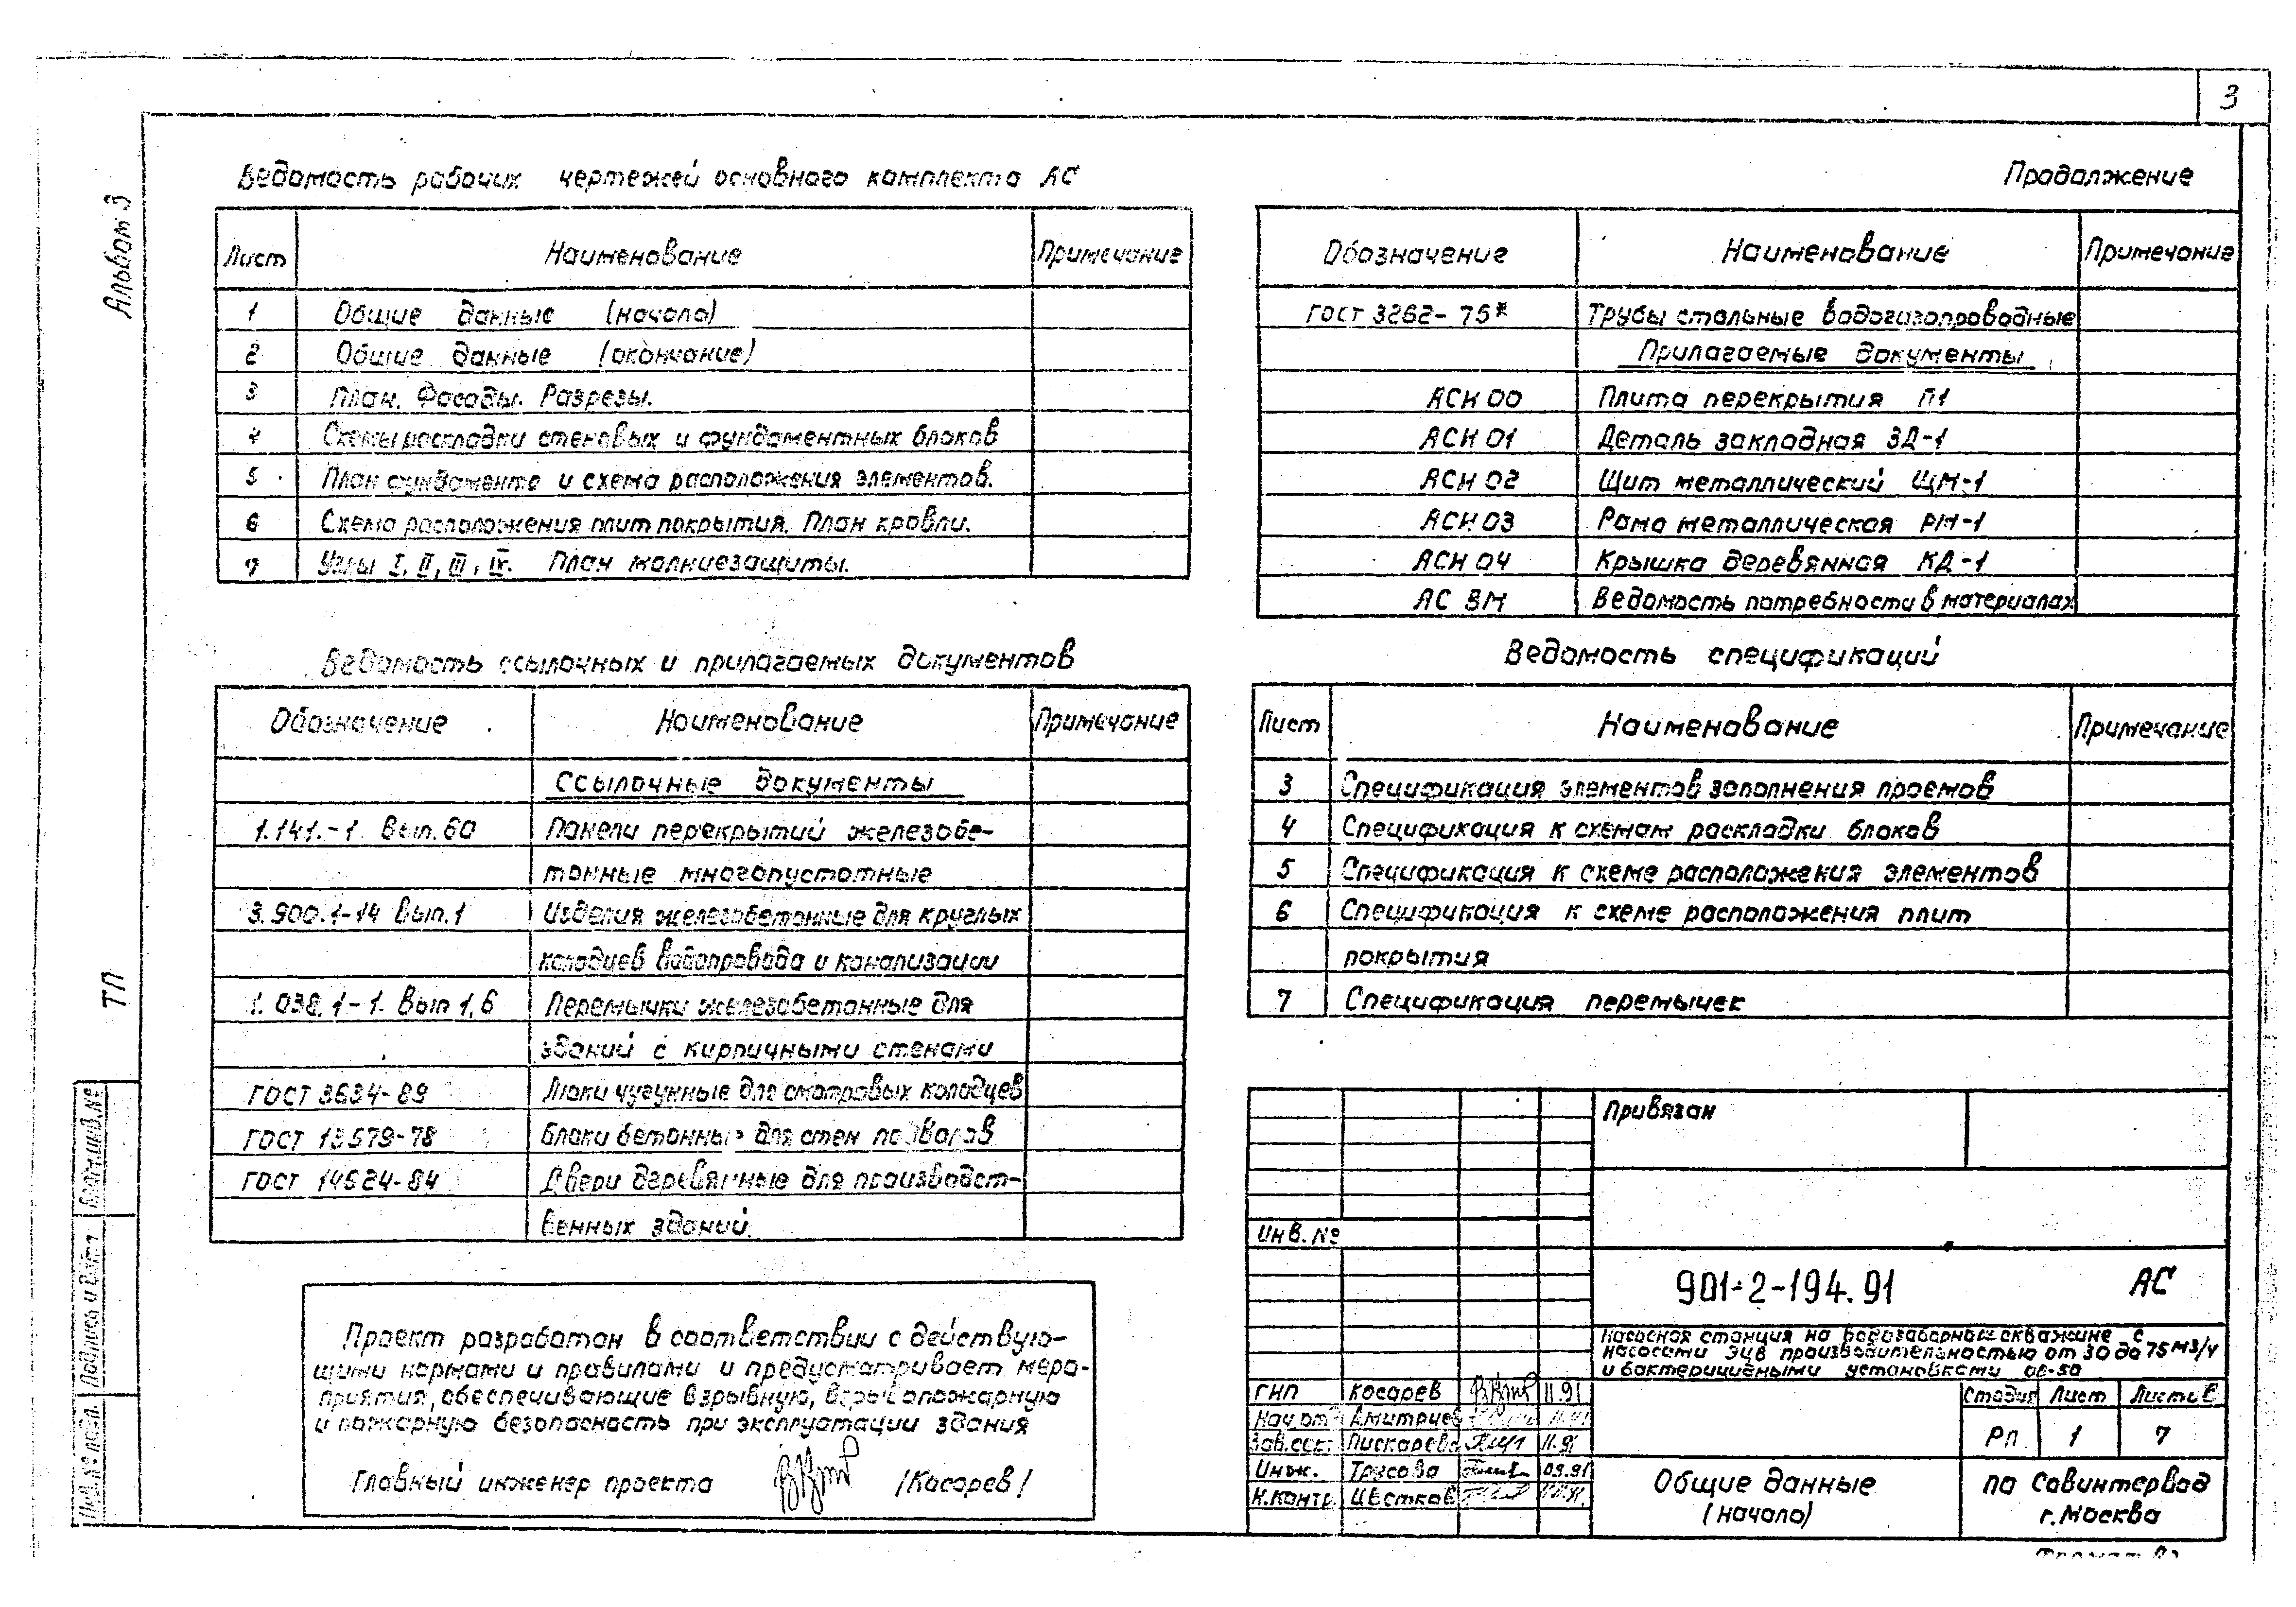 3
Альбом 3
ТП
Ведомость рабочих чертежей основного комплекта АС
Лист Наименование Примечание
1 Общие данные (начало)
2 Общие данные (окончание)
3 План. Фасады. Разрезы.
4 Схемы раскладки стеновых и фундаментных блоков
5 План фундамента и схема расположения элементов.
6 Схема расположения плит покрытия. План кровли.
7 Узлы I, II, III, IV. План молниезащиты.
Ведомость ссылочных и прилагаемых документов
Обозначение Наименование Примечание
Ссылочные документы
1.141.-1 Вып. 60 Панели перекрытий железобе-
тонные многопустотные
3.900.1-14 Вып.1 Изделия железобетонные для круглых
колодцев водопровода и канализации
1.038.1-1. Вып 1,6 Перемычки железобетонные для
зданий с кирпичными стенами
ГОСТ 3634-89 Люки чугунные для смотровых колодцев
ГОСТ 13579-78 Блоки бетонные для стен подвалов
ГОСТ 14624-84 Двери деревянные для производст-
венных зданий.
Проект разработан в соответствии с действую-
щими нормами и правилами и предусматривает меро-
приятия, обеспечивающие взрывную, взрывопожарную
и пожарную безопасность при эксплуатации здания
Главный инженер проекта /Косарев/
Продолжение
Обозначение Наименование Примечание
ГОСТ 3262-75* Трубы стальные водогазопроводные
Прилагаемые документы
АСИ 00 Плита перекрытия П1
АСИ 01 Деталь закладная ЗД-1
АСИ 02 Щит металлический ЩМ-1
АСИ 03 Рама металлическая РМ-1
АСИ 04 Крышка деревянная КД-1
АС ВМ Ведомость потребности в материалах
Ведомость спецификаций
Лист Наименование Примечание
3 Спецификация элементов заполнения проемов
4 Спецификация к схемам раскладки блоков
5 Спецификация к схеме расположения элементов
6 Спецификация к схеме расположения плит
покрытия
7 Спецификация перемычек
Привязан
Инв. №
901-2-194.91 АС
Насосная станция на водозаборной скважине с
насосами ЭЦВ производительностью от 30 до 75 м3/ч
и бактерицидными установками ОВ-50
ГИП Косарев 11.91
Нач. отд. Дмитриев
Зав. сек. Пискарева 11.91
Инж. Трусова 09.91
Н.контр. Цветков
Стадия Лист Листов
РП 1 7
Общие данные
(начало)
ПО Совинтервод
г. Москва
Взам. инв. №
Подпись и дата
Инв. № подл.